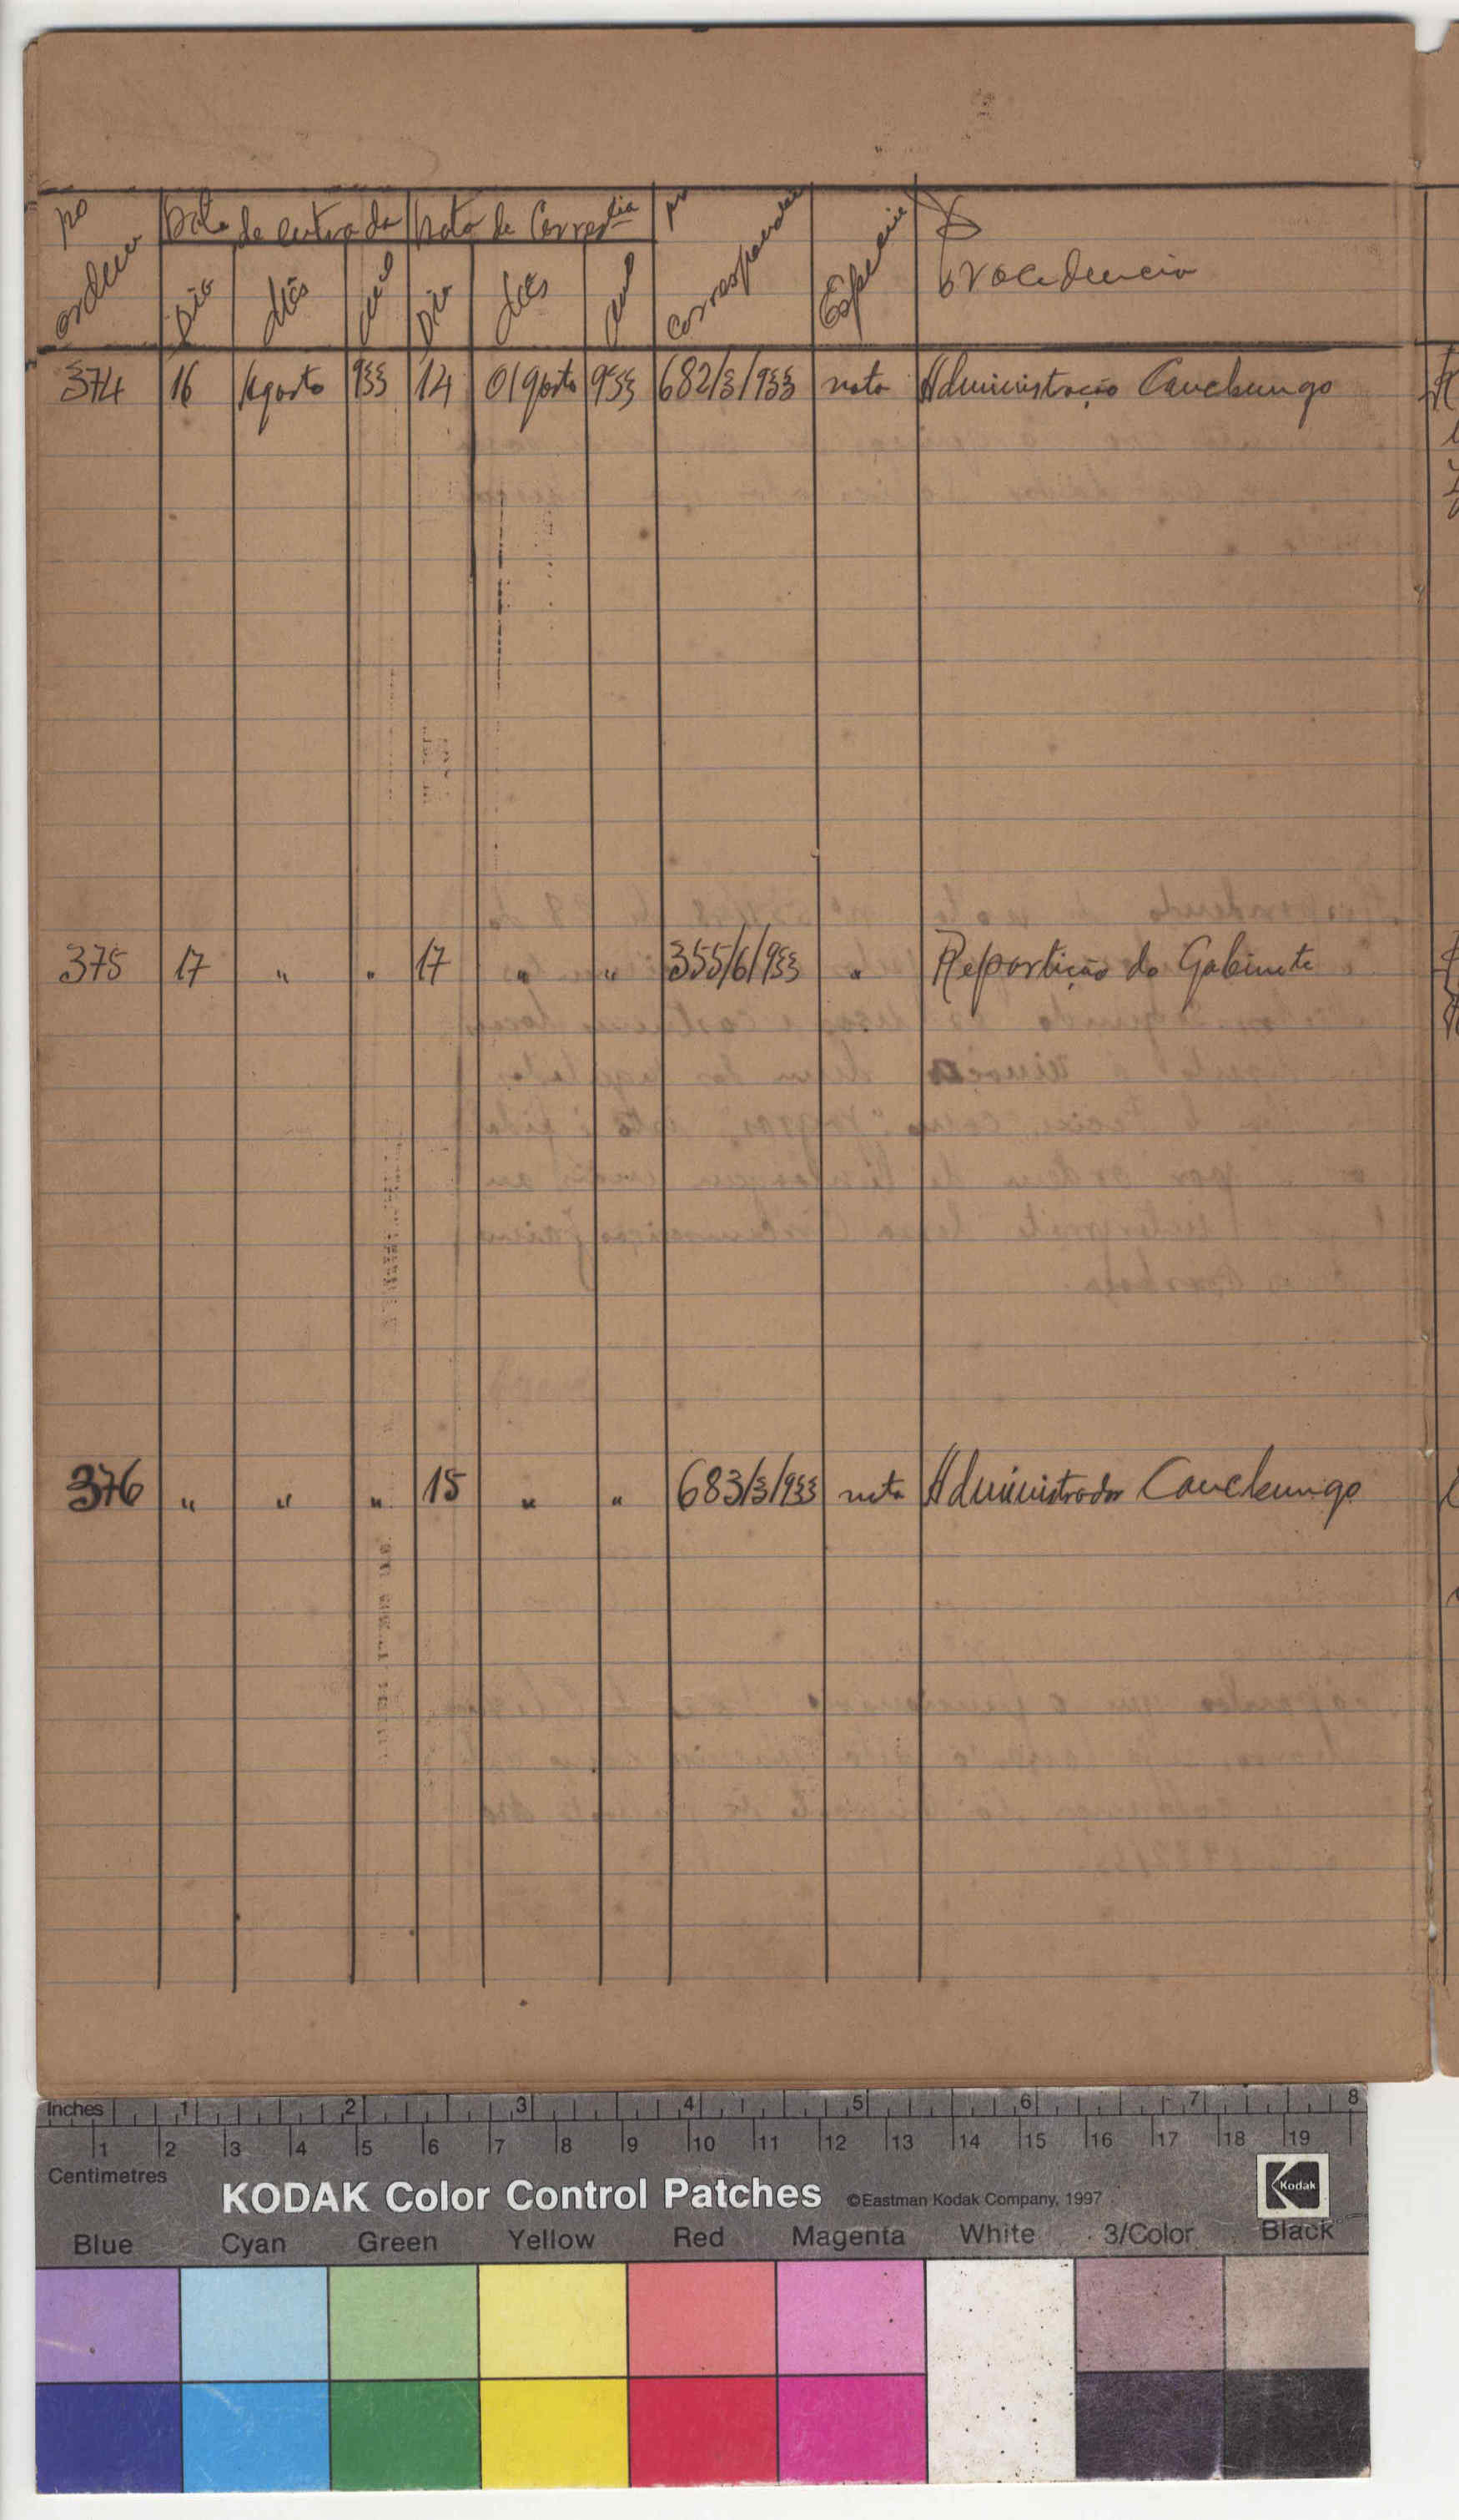 no ordem Data de entrada Data de Corresp.cia no correspondencia Especie Procedencia
Dia Mês Anno Dia Mês Anno
374 16 Agosto 933 14 Agosto 933 682/3/933 nota Administração Canchungo
375 17 " " 17 " " 355/6/933 " Repartição do Gabinete
376 " " " 15 " " 683/3/933 nota Administrador Canchungo
Inches 1 2 3 4 5 6 7 8
1 2 3 4 5 6 7 8 9 10 11 12 13 14 15 16 17 18 19
Centimetres
KODAK Color Control Patches ©Eastman Kodak Company, 1997 Kodak
Blue Cyan Green Yellow Red Magenta White 3/Color Black